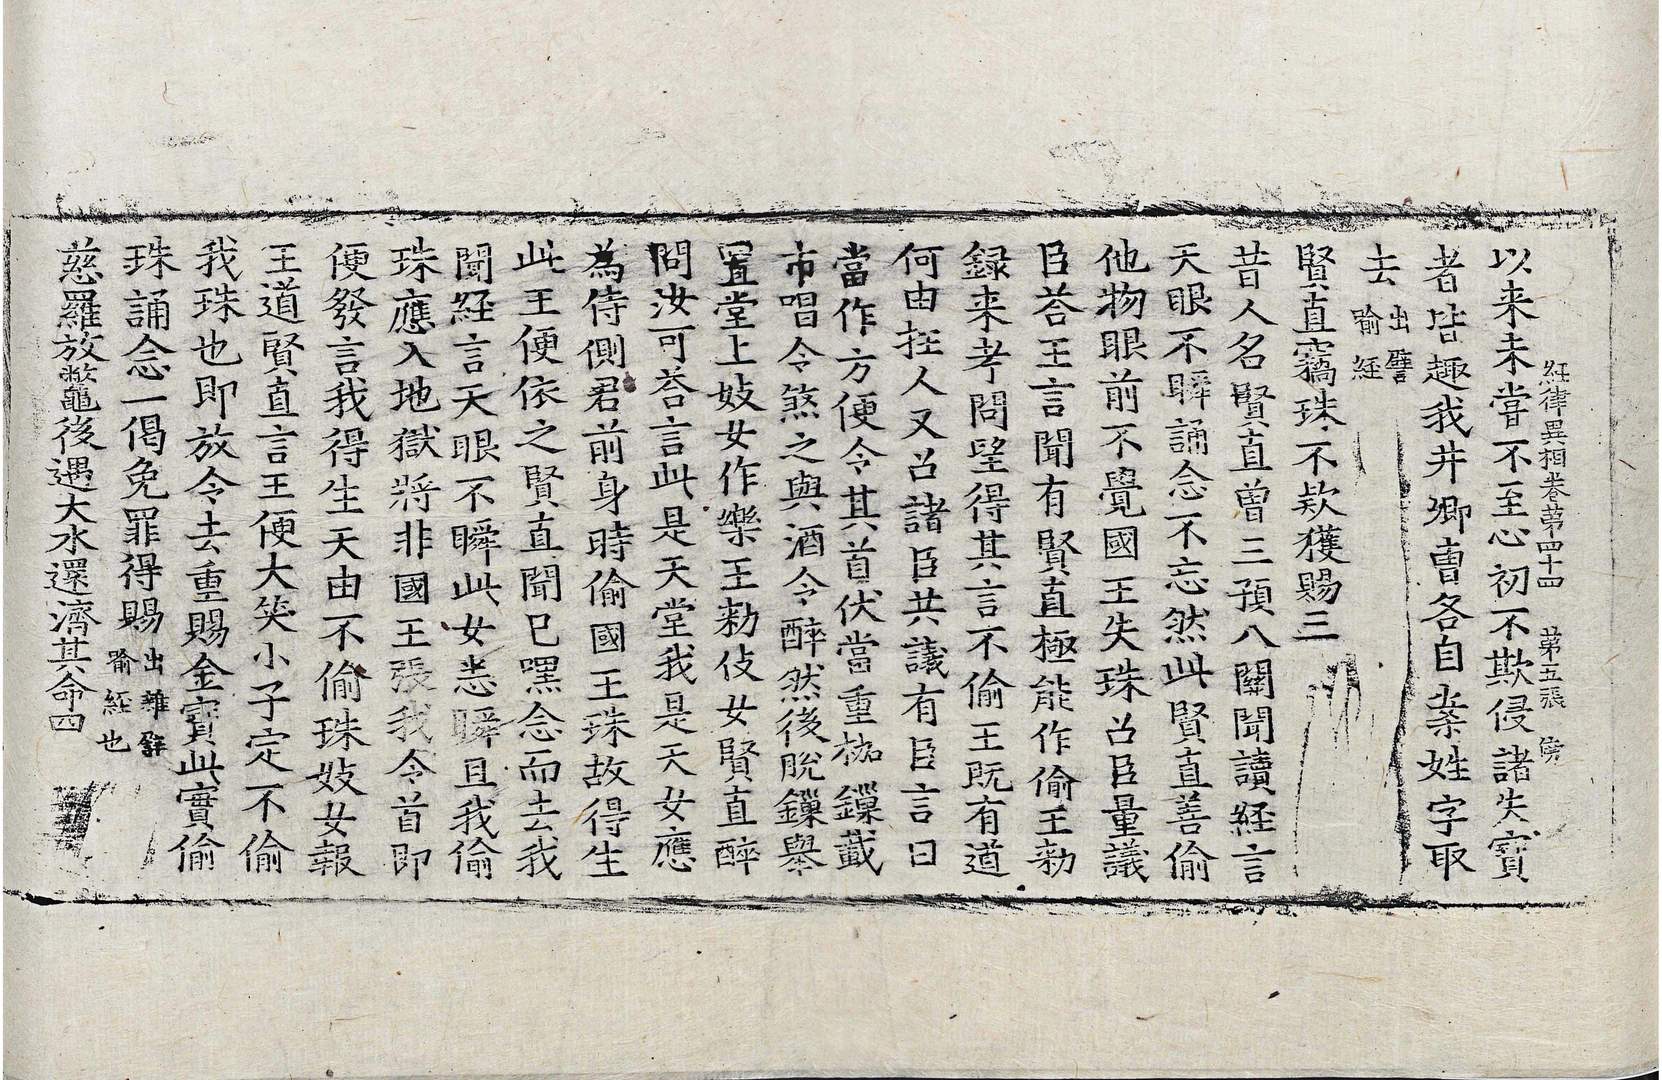 経律異相巻苐四十四 苐五張 㑃
以来未嘗不至心初不欺侵諸失寳
者皆趣我井卿曺各自㭍姓字取
去 出譬
喻経
賢直竊珠不欵獲賜三
昔人名賢直曽三預八關聞讀経言
天眼不瞬誦念不忘然此賢直善偷
他物眼前不覺國王失珠召臣量議
臣荅王言聞有賢直極能作偷王勑
録来考問堅得其言不偷王既有道
何由抂人又召諸臣共議有臣言曰
當作方便令其首伏當重枷鏁蔵
市唱令煞之與酒令醉然後脫鏁轝
置堂上妓女作樂王勑伎女賢直醉
問汝可荅言此是天堂我是天女應
為侍側君前身時偷國王珠故得生
此王便依之賢直聞已嘿念而去我
聞経言天眼不瞬此女恙瞬且我偷
珠應入地獄將非國王張我令首即
便發言我得生天由不偷珠妓女報
王道賢直言王便大笑小子定不偷
我珠也即放令去重賜金寳此實偷
珠誦念一偈免罪得賜 出雜譬
喻経也
慈羅放鱉鼈後遇大水還濟其命四